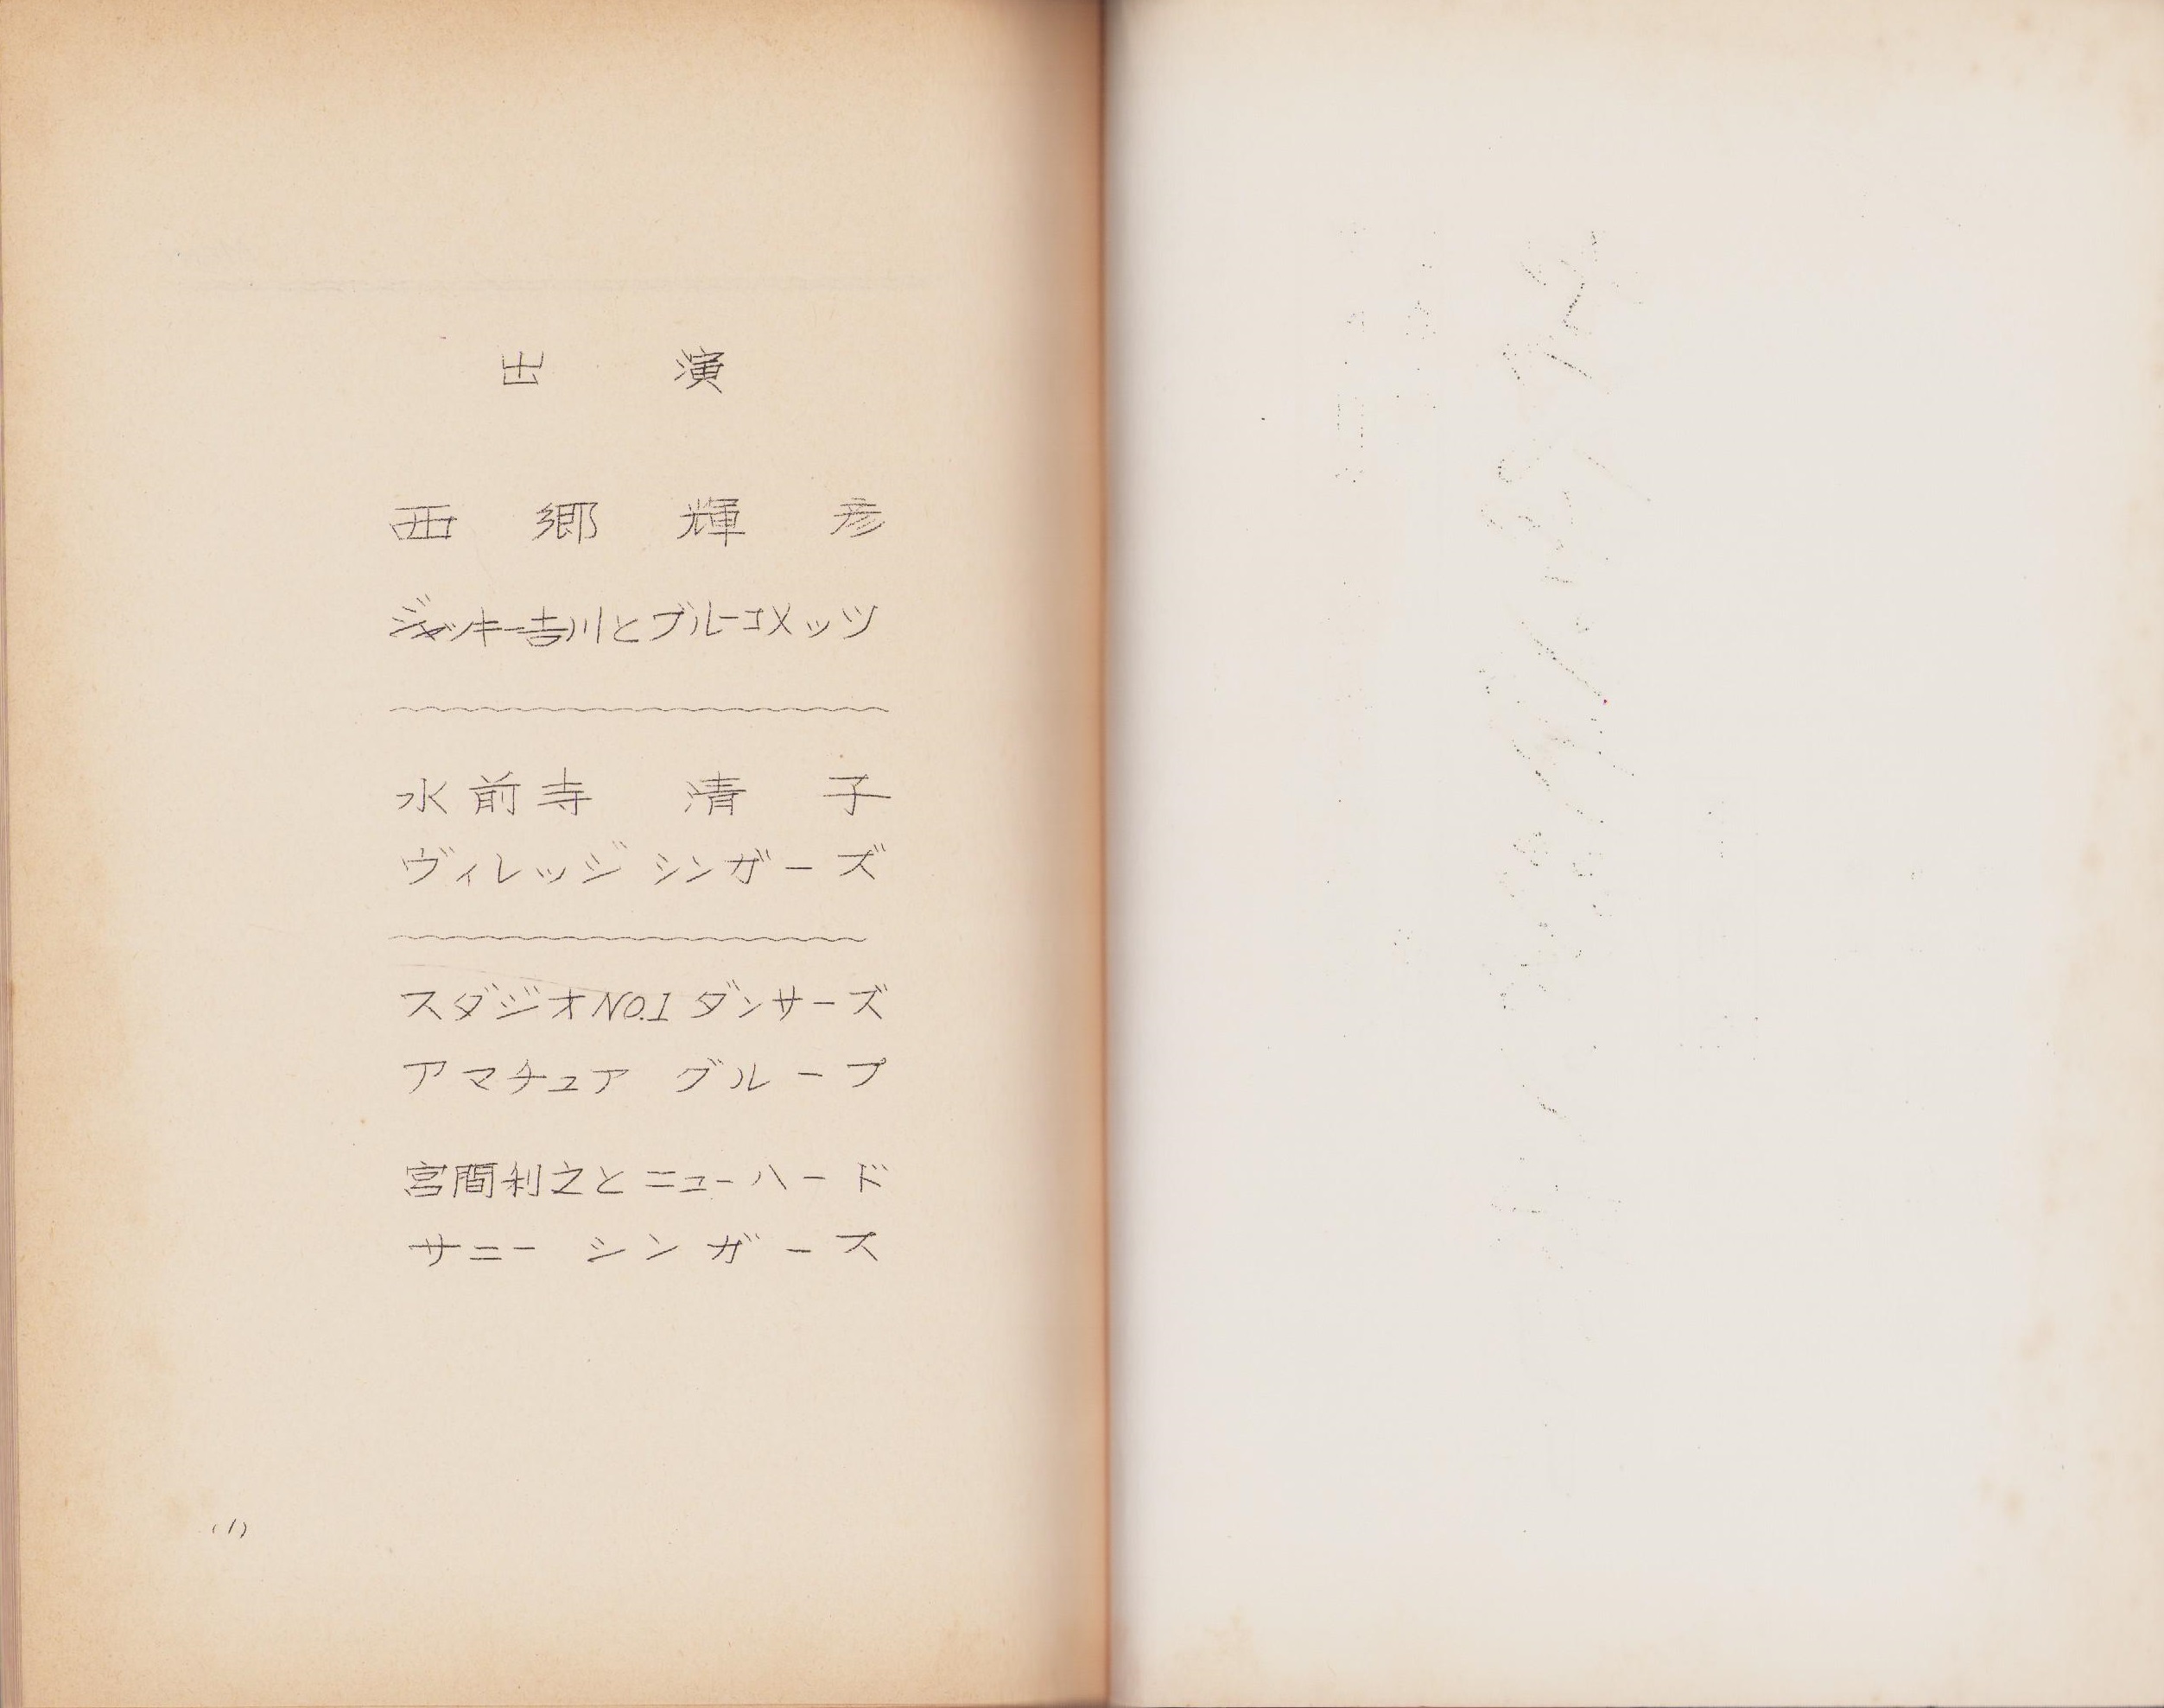 出演
西郷輝彦
ジャッキー吉川とブルーコメッツ
水前寺清子
ヴィレッジシンガーズ
スダジオNO.1ダンサーズ
アマチュアグループ
宮間利之とニューハード
サニーシンガーズ
(1)